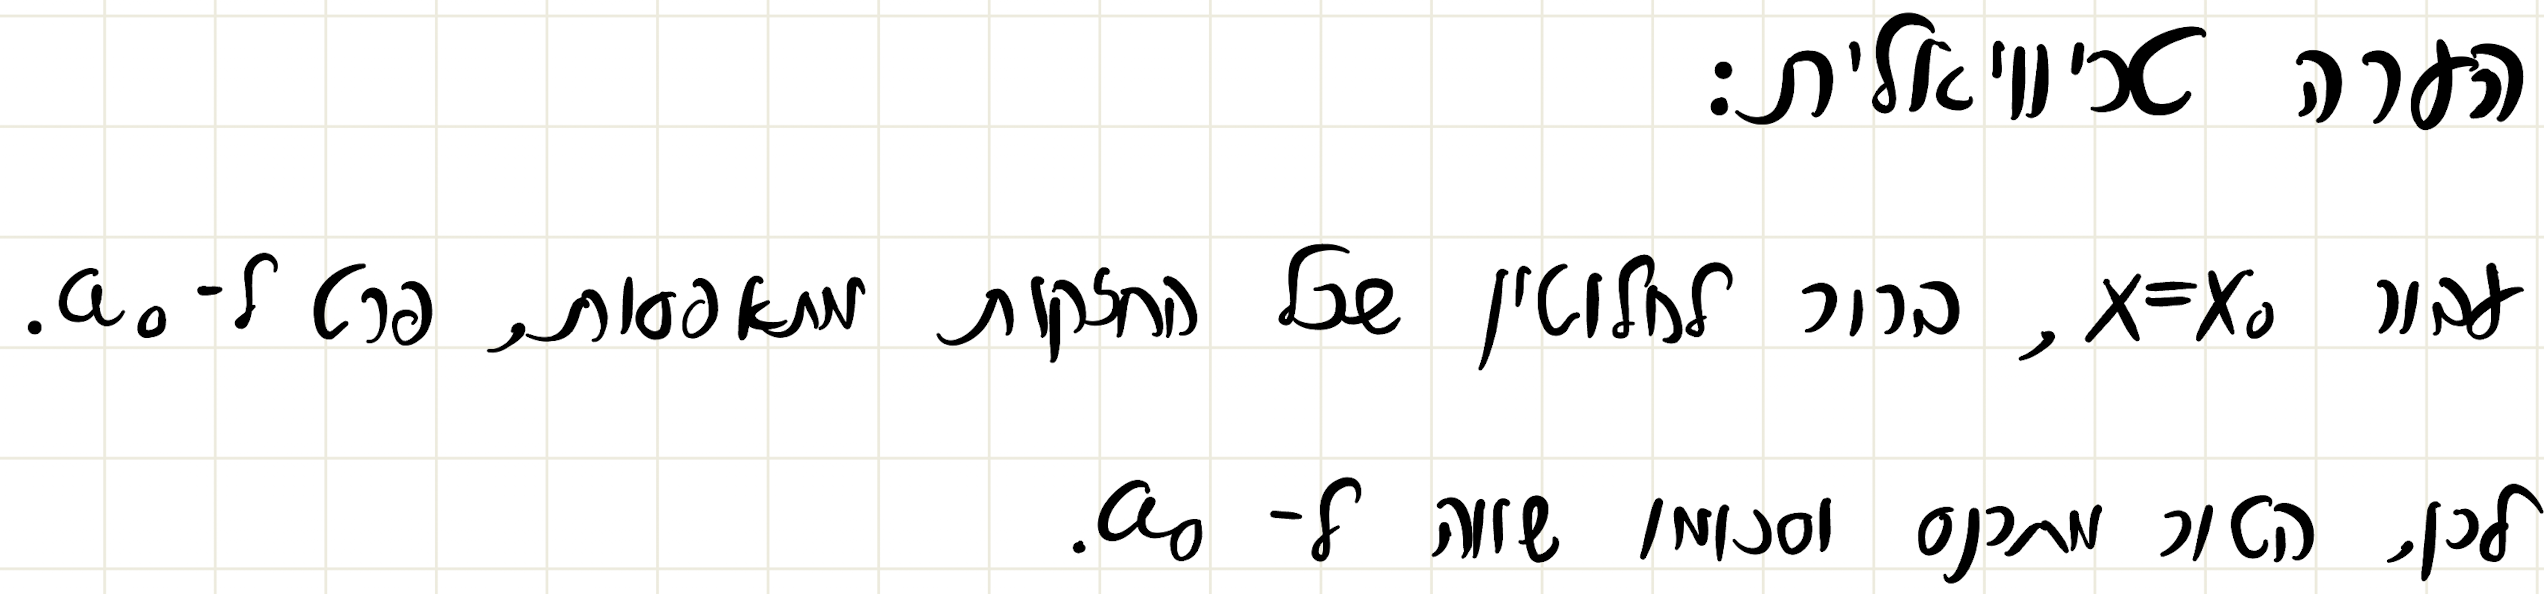 הערה טריוויאלית:
עבור x=x₀, ברור לחלוטין שכל החזקות מתאפסות, פרט ל- a₀.
לכן, הטור מתכנס וסכומו שווה ל- a₀.